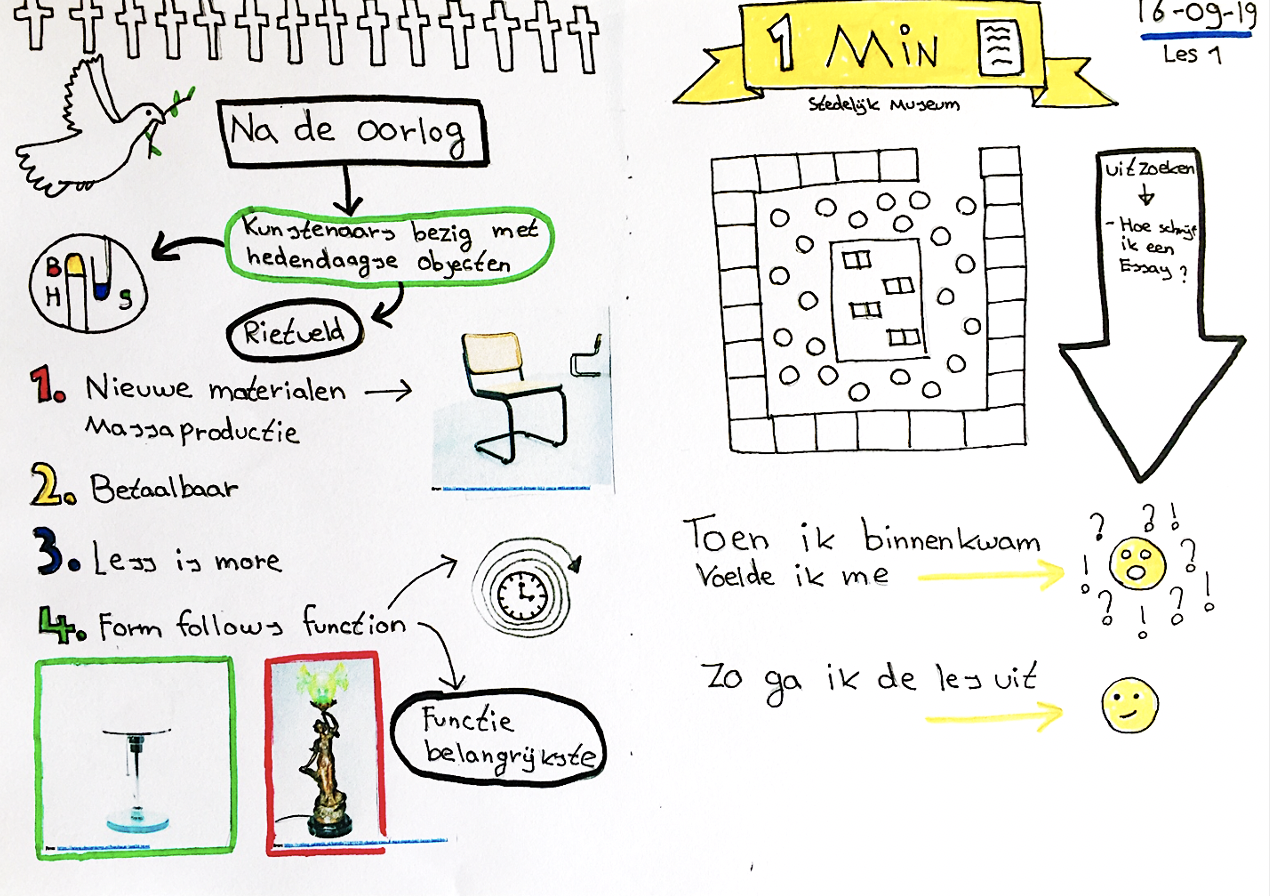 Na de oorlog
Kunstenaars bezig met
hedendaagse objecten
B
H
S
Rietveld
1. Nieuwe materialen
Massaproductie
2. Betaalbaar
3. Less is more
4. Form follows function
Functie
belangrijkste
1 Min
Stedelijk Museum
16-09-19
Les 1
uitzoeken
- Hoe schrijf
ik een
Essay?
Toen ik binnenkwam
Voelde ik me
? ? ! ? ! ? ! ? !
Zo ga ik de les uit